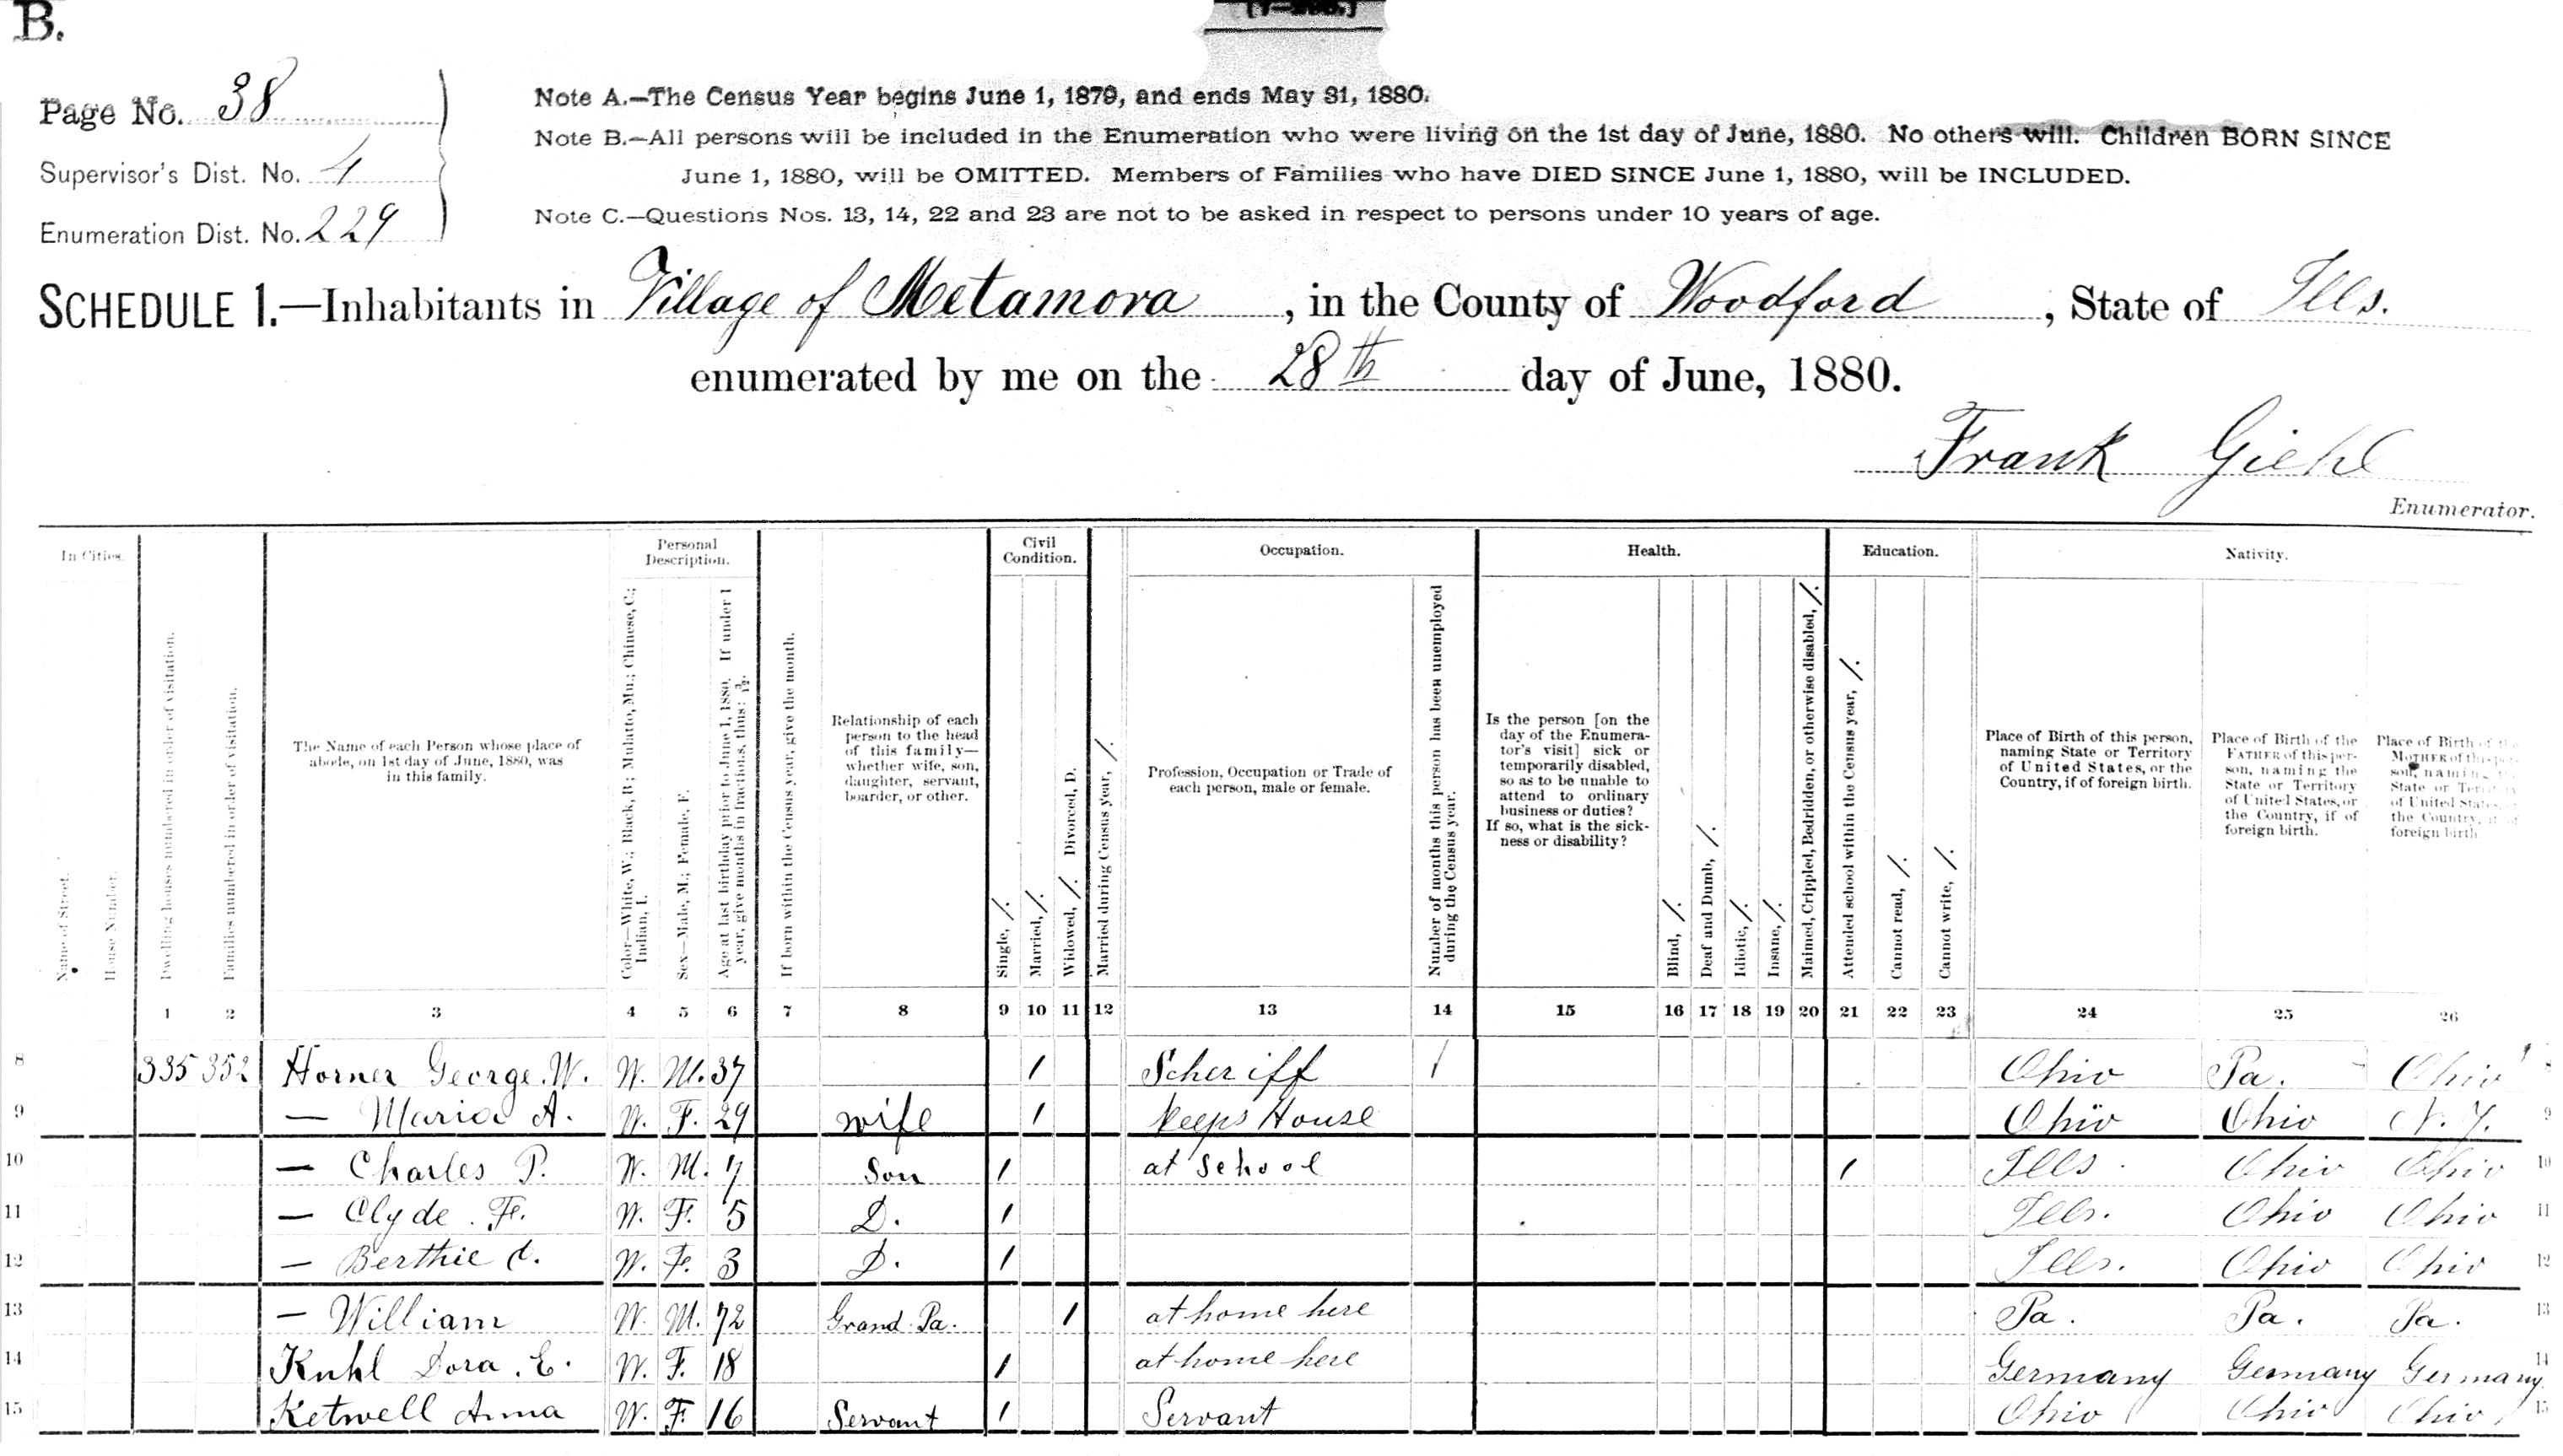 B.
Page No. 38
Supervisor's Dist. No. 4
Enumeration Dist. No. 229
Note A.—The Census Year begins June 1, 1879, and ends May 31, 1880.
Note B.—All persons will be included in the Enumeration who were living on the 1st day of June, 1880. No others will. Children BORN SINCE
June 1, 1880, will be OMITTED. Members of Families who have DIED SINCE June 1, 1880, will be INCLUDED.
Note C.—Questions Nos. 13, 14, 22 and 23 are not to be asked in respect to persons under 10 years of age.
SCHEDULE 1.—Inhabitants in Village of Metamora, in the County of Woodford, State of Ills.
enumerated by me on the 28th day of June, 1880.
Frank Giehl
Enumerator.
In Cities.
Name of Street.
House Number.
Dwelling houses numbered in order of visitation.
Families numbered in order of visitation.
The Name of each Person whose place of
abode, on 1st day of June, 1880, was
in this family.
Personal
Description.
Color—White, W.; Black, B.; Mulato, Mu.; Chinese, C.;
Indian, I.
Sex—Male, M.; Female, F.
Age at last birthday prior to June 1, 1880. If under 1
year, give months in fractions, thus: 3/12.
If born within the Census year, give the month.
Relationship of each
person to the head
of this family—
whether wife, son,
daughter, servant,
boarder, or other.
Civil
Condition.
Single, /.
Married, /.
Widowed, /. Divorced, D.
Married during Census year, /.
Occupation.
Profession, Occupation or Trade of
each person, male or female.
Number of months this person has been unemployed
during the Census year.
Health.
Is the person [on the
day of the Enumera-
tor's visit] sick or
temporarily disabled,
so as to be unable to
attend to ordinary
business or duties?
If so, what is the sick-
ness or disability?
Blind, /.
Deaf and Dumb, /.
Idiotic, /.
Insane, /.
Maimed, Crippled, Bedridden, or otherwise disabled, /.
Education.
Attended school within the Census year, /.
Cannot read, /.
Cannot write, /.
Nativity.
Place of Birth of this person,
naming State or Territory
of United States, or the
Country, if of foreign birth.
Place of Birth of the
FATHER of this per-
son, naming the
State or Territory
of United States, or
the Country, if of
foreign birth.
Place of Birth of the
MOTHER of this per-
son, naming the
State or Territory
of United States, or
the Country, if of
foreign birth
1 2 3 4 5 6 7 8 9 10 11 12 13 14 15 16 17 18 19 20 21 22 23 24 25 26
8 335 352 Horner George W. W. M. 37 / Scheriff / Ohio Pa. Ohio 8
9 — Maria A. W. F. 29 wife / keeps House Ohio Ohio N. Y. 9
10 — Charles P. W. M. 7 Son / at School / Ills. Ohio Ohio 10
11 — Clyde. F. W. F. 5 D. / Ills. Ohio Ohio 11
12 — Berthie C. W. F. 3 D. / Ills. Ohio Ohio 12
13 — William W. M. 72 Grand Pa. / at home here Pa. Pa. Pa. 13
14 Kuhl Dora. E. W. F. 18 / at home here Germany Germany Germany 14
15 Ketwell Anna W. F. 16 Servant / Servant Ohio Ohio Ohio 15